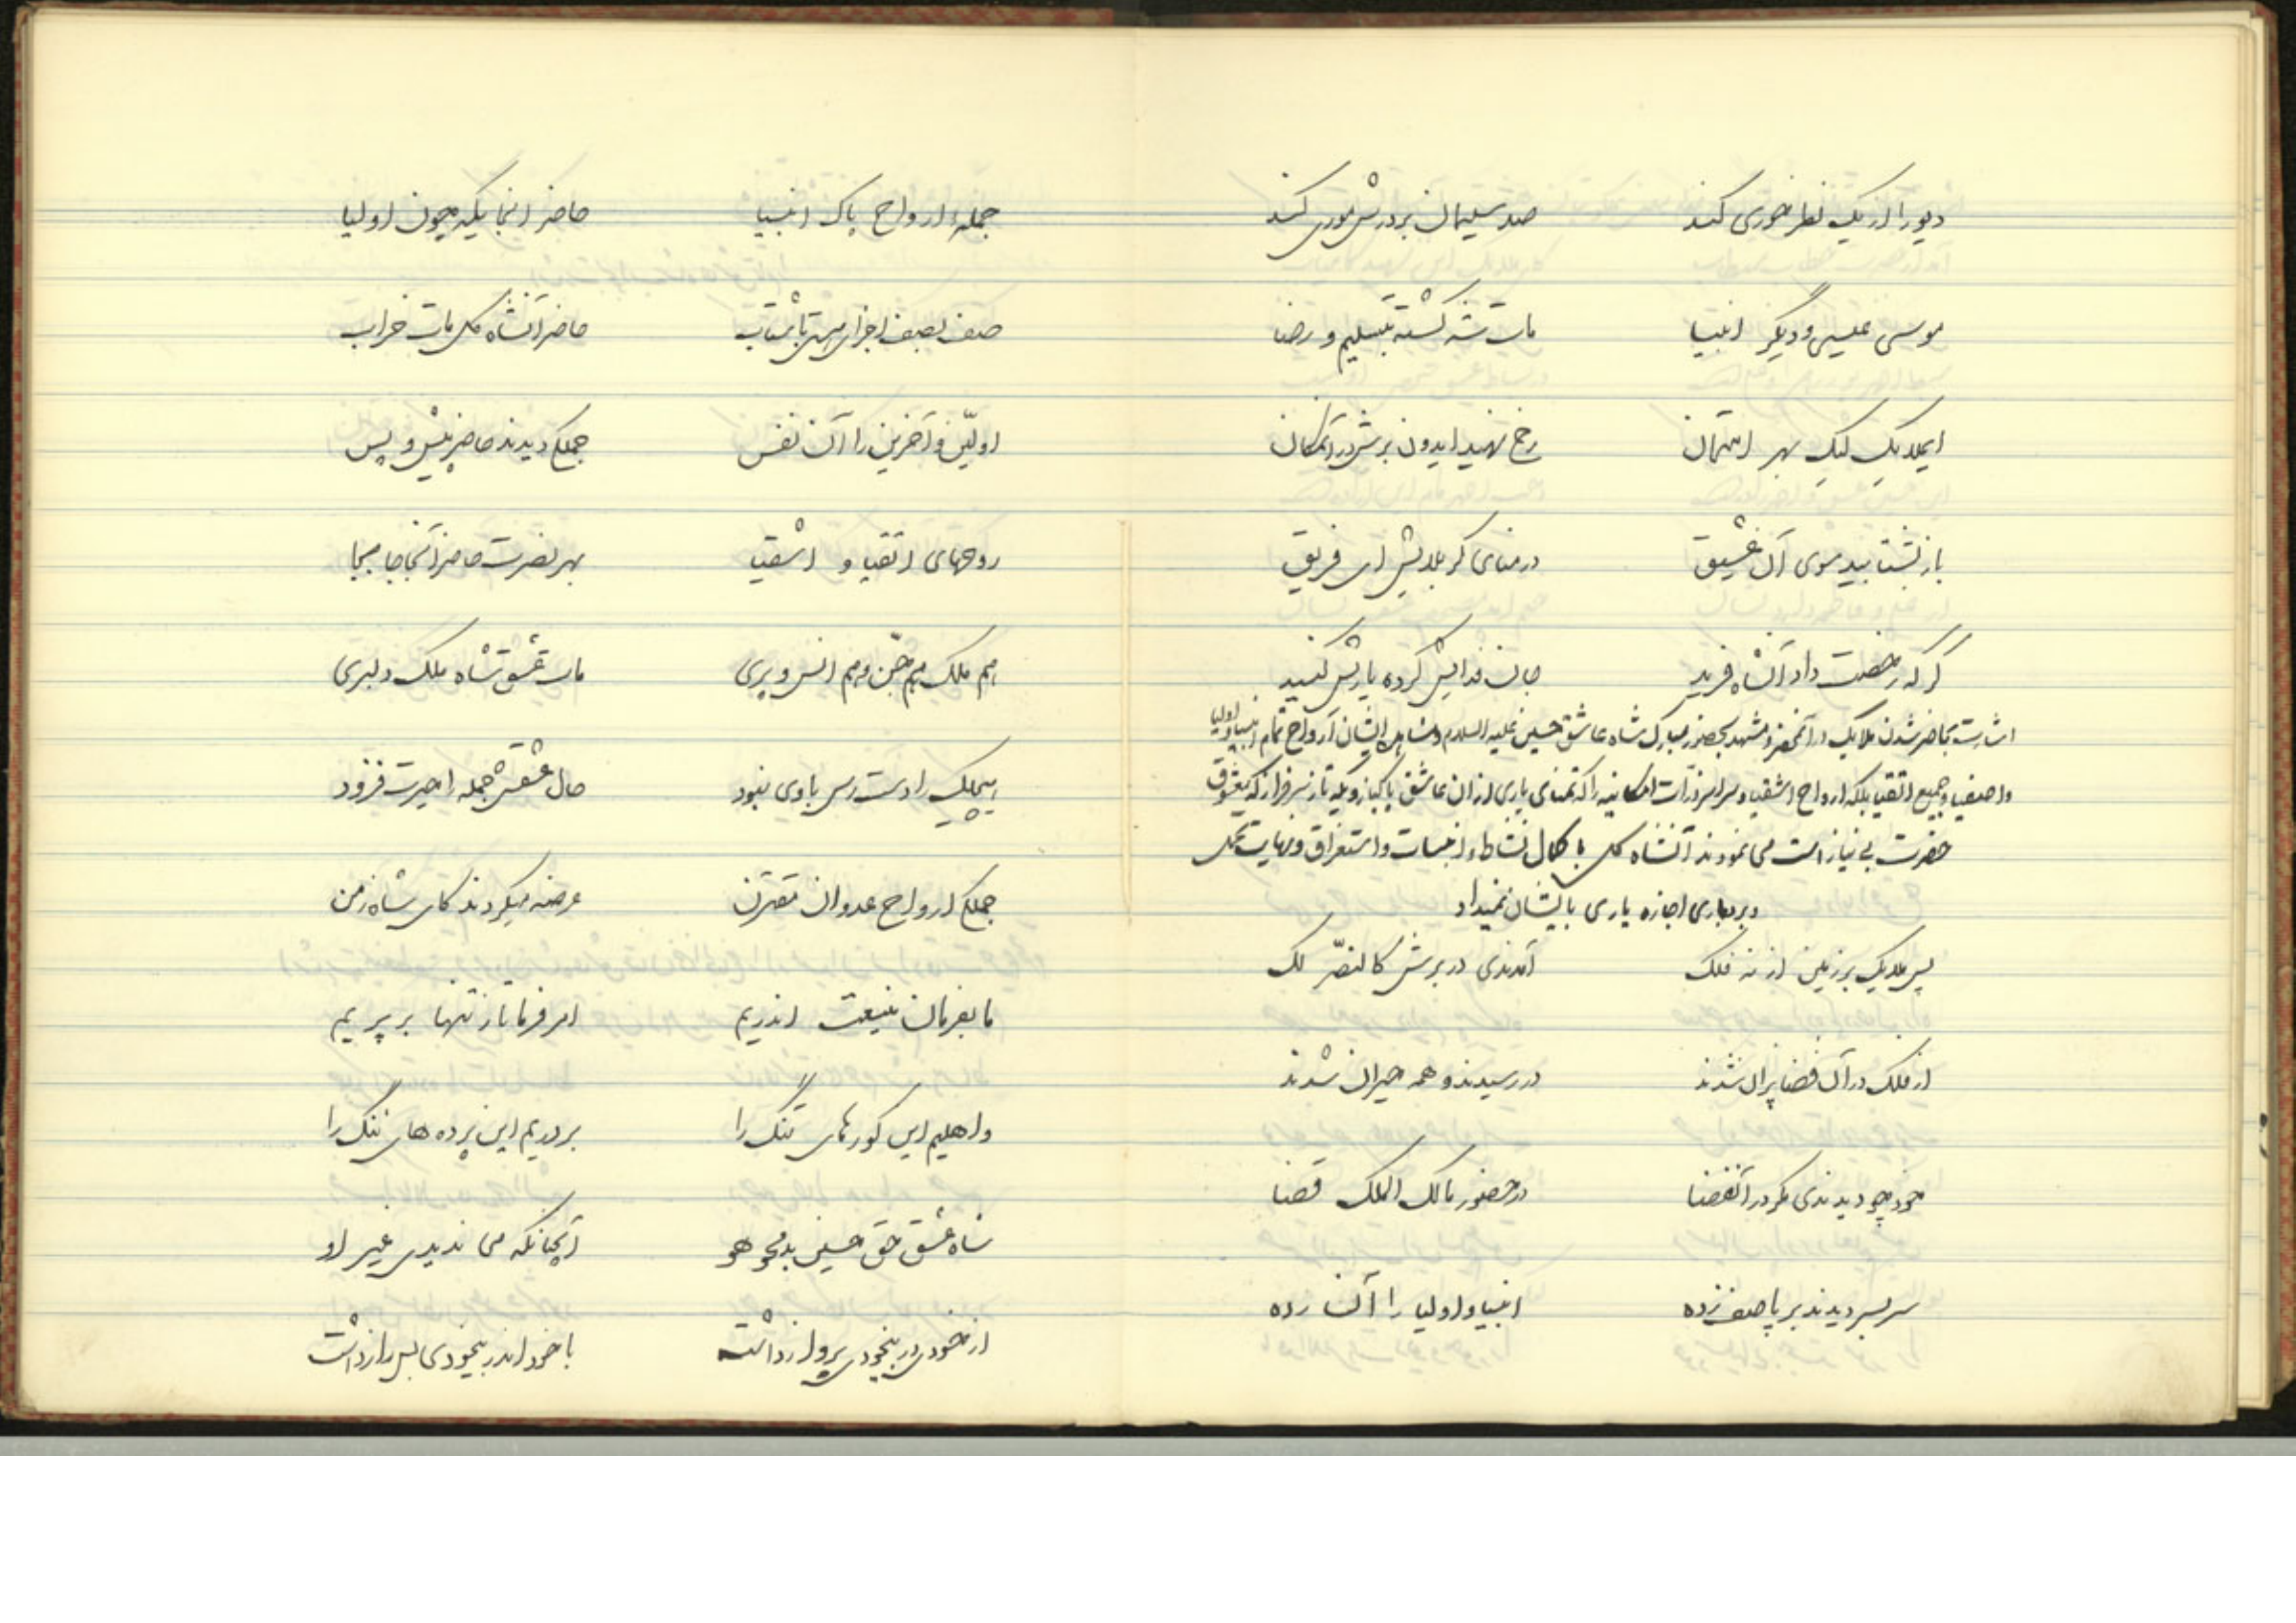 دیو را از یک نظر حوری کند صد سلیمان بر درش موری کند
موسی عیسی و دیگر انبیا مات شه گشته بتسلیم و رضا
ایملایک لیک بهر امتحان رخ نهید ایدون برش در آنمکان
باز بشتابید سوی آن عشیق در منای کربلایش ای فریق
گر که رخصت داد آنشاه فرید جان فدایش کرده یاریش کنید
اشارت بحاضر شدن ملایک در آنمحضر و مشهد بحضور مبارک شاه عاشق حسین علیه السلام و مشاهده ایشان ارواح تمام انبیا و اولیا
و اصفیا و جمیع اتقیا بلکه ارواح اشقیا و سراسر ذرات امکانیه را که تمنای یاری از ان عاشق پاکباز و یکه تاز سرفراز که معشوق
حضرت بی نیاز است می نمودند آنشاه کل با کمال نشاط و انبساط و استغراق و نهایت تحمل
و بردباری اجازه یاری بایشان نمیداد
پس ملایک بر زمین از نه فلک آمدندی در برش کالنصر لک
از فلک در آن فضا پران شدند در رسیدند و همه حیران شدند
خود چو دیدندی مگر در آنفضا در حضور مالک الملک قضا
سربسر دیدند بر پا صف زده انبیا و اولیا را آن رده
جملهٔ ارواح پاک انبیا حاضر آنجا یکه چون اولیا
صف بصف اجزای هستی باشتاب حاضر آنشاه کل مات خراب
اولین و آخرین را آن نفس جملگی دیدند حاضر پیش و پس
روحهای اتقیا و اشقیا بهر نصرت حاضر آنجا جابجا
هم ملک هم جن و هم انس و پری مات عشق شاه ملک دلبری
هیچیک را دست رس با وی نبود حال عشقش جمله را حیرت فزود
جملگی ارواح عدوان مقترن عرضه میکردند کای شاه زمن
ما بفرمان منیعت اندریم امر فرما تا ز تنها بر پریم
واهلیم این گورهای تنگ را بر دریم این پرده های ننگ را
شاه عشق حق حسین بد محو هو آنچنانکه می ندیدی غیر او
از خودی در بیخودی پرواز داشت با خود اندر بیخودی بس راز داشت